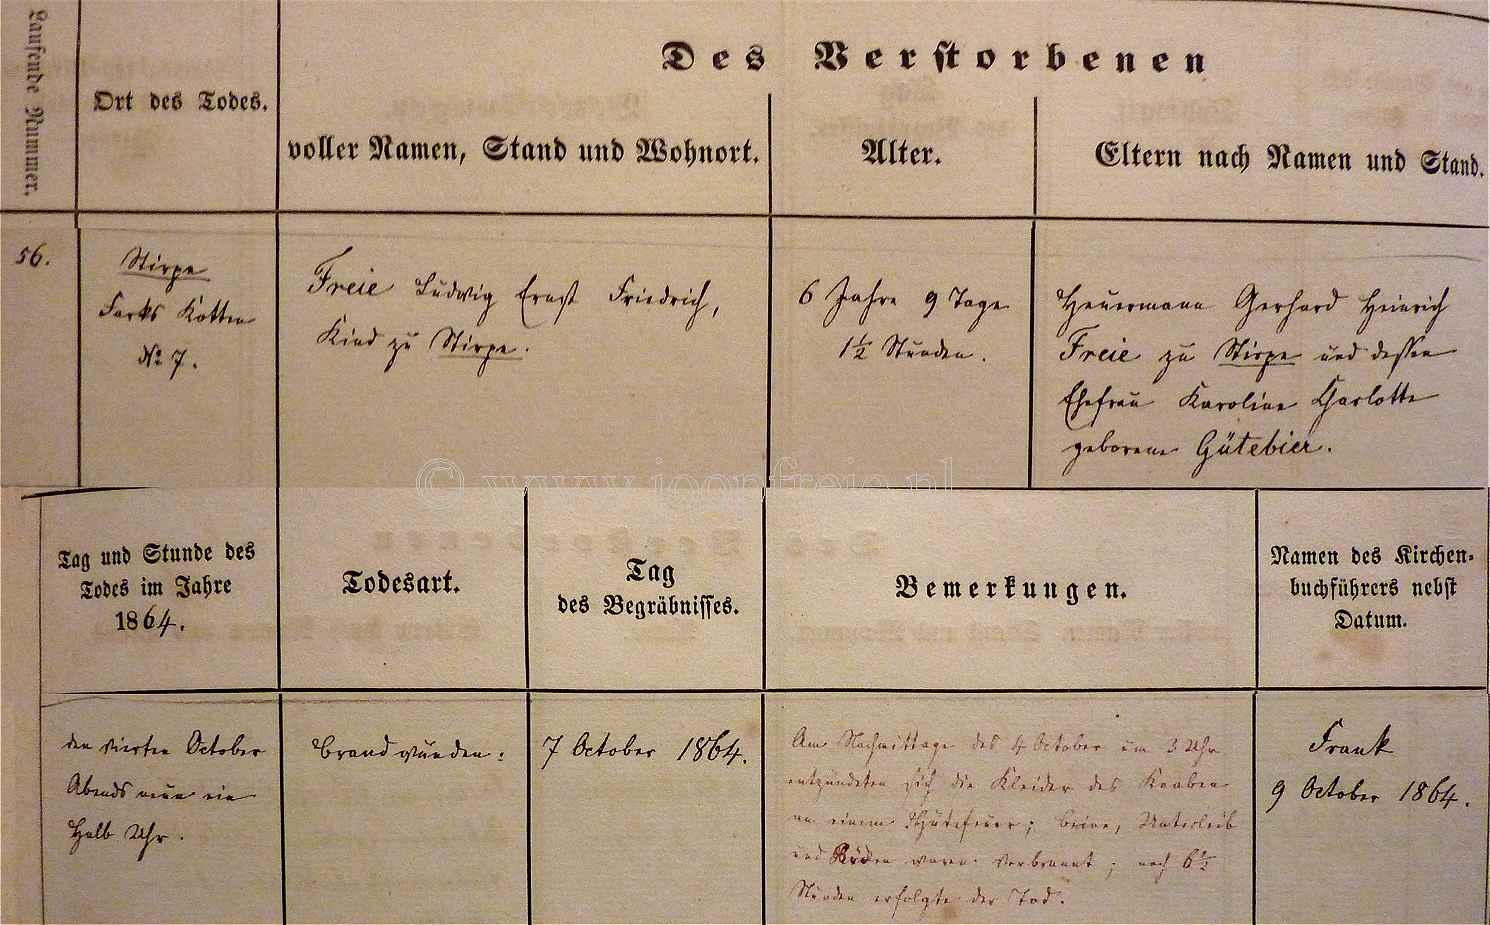 Laufende Nummer.
Ort des Todes.
Des Verstorbenen
voller Namen, Stand und Wohnort.
Alter.
Eltern nach Namen und Stand.
56.
Stirpe
Farks Kotten
No 7.
Freie Ludwig Ernst Friedrich,
Kind zu Stirpe.
6 Jahre 9 Tage
1½ Stunden.
Heuermann Gerhard Heinrich
Freie zu Stirpe und dessen
Ehefrau Karoline Charlotte
geborene Gütebier.
© www.joopfreie.nl
Tag und Stunde des
Todes im Jahre
1864.
Todesart.
Tag
des Begräbnisses.
Bemerkungen.
Namen des Kirchen-
buchführers nebst
Datum.
den vierten October
Abends neun ein
Halb Uhr.
Brandwunden.
7 October 1864.
Am Nachmittage des 4 October um 3 Uhr
entzündeten sich die Kleider des Knaben
an einem Hütefeuer; Beine, Unterleib
und Rücken waren verbrannt; nach 6½
Stunden erfolgte der Tod.
Frank
9 October 1864.